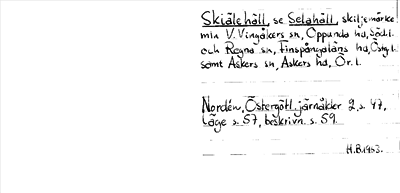 Skiälehäll, se Selahäll, skiljemärke
mln V. Vingåkers sn, Oppunda hd, Södl.
och Regna sn, Finspångaläns hd, Östg.l.
samt Askers sn, Askers hd, Ör.l.
Nordén, Östergötl. järnålder 2, s. 47,
läge s. 57, beskrivn. s. 59.
H.B. 1953.